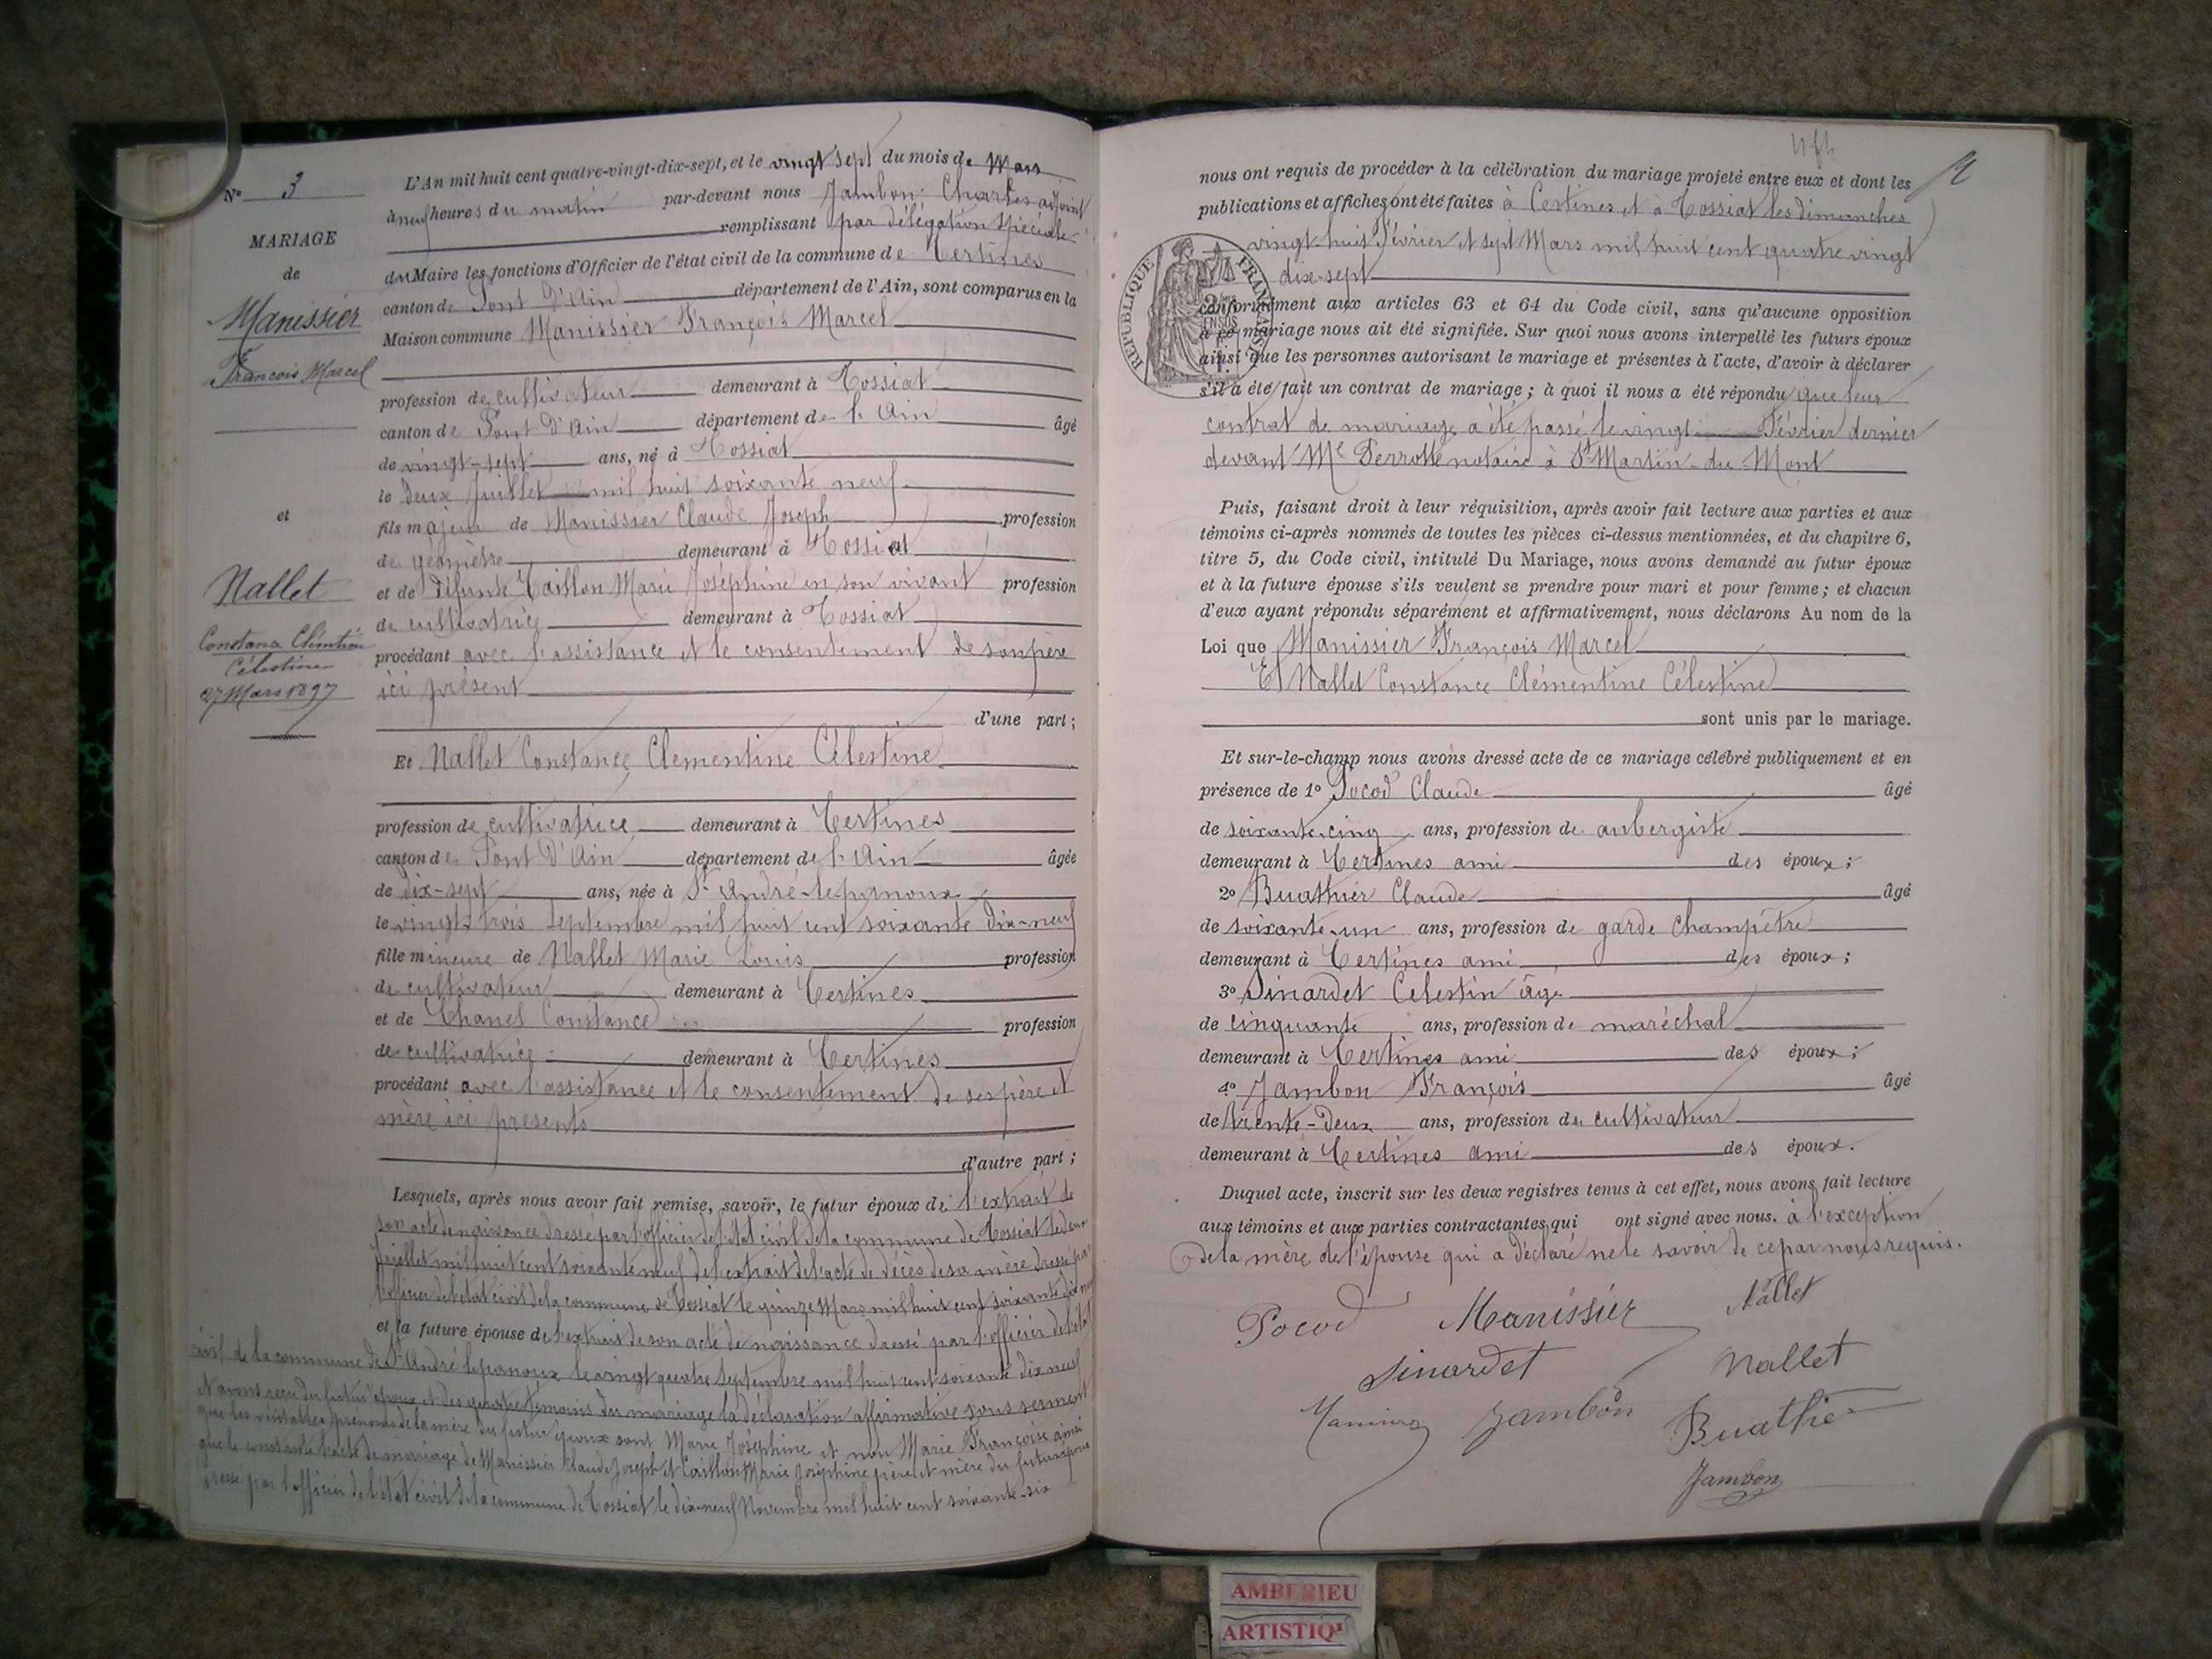 N° 3
MARIAGE
de
Manissier
François Marcel
et
Nallet
Constance Clémentine
Célestine
27 Mars 1897
L'An mil huit cent quatre-vingt-dix-sept, et le vingt sept du mois de Mars
à neuf heures du matin par-devant nous Jambon Charles adjoint
remplissant par délégation spéciale
du Maire les fonctions d'Officier de l'état civil de la commune de Certines
canton de Pont D'Ain département de l'Ain, sont comparus en la
Maison commune Manissier François Marcel
profession de cultivateur demeurant à Tossiat
canton de Pont D'Ain département de l'Ain âgé
de vingt-sept ans, né à Tossiat
le Deux Juillet mil huit soixante neuf
fils majeur de Manissier Claude Joseph profession
de géomètre demeurant à Tossiat
et de Défunte Caillon Marie Joséphine en son vivant profession
de cultivatrice demeurant à Tossiat
procédant avec l'assistance et le consentement de son père
ici présent
d'une part ;
Et Nallet Constance Clementine Célestine
profession de cultivatrice demeurant à Certines
canton de Pont D'Ain département de l'Ain âgée
de dix-sept ans, née à St André-lepanoux
le vingt trois Septembre mil huit cent soixante dix-neuf
fille mineure de Nallet Marie Louis profession
de cultivateur demeurant à Certines
et de Chanel Constance profession
de cultivatrice demeurant à Certines
procédant avec l'assistance et le consentement de ses père et
mère ici présents
d'autre part ;
Lesquels, après nous avoir fait remise, savoir, le futur époux de l'extrait de
son acte de naissance dressé par l'officier de l'état civil de la commune de Tossiat le deux
Juillet mil huit cent soixante neuf de l'extrait de l'acte de décès de sa mère dressé par
l'officier de l'état civil de la commune de Tossiat le quinze Mars mil huit cent soixante dix neuf
et la future épouse de l'extrait de son acte de naissance dressé par l'officier de l'état
civil de la commune de St André lepanoux le vingt quatre Septembre mil huit cent soixante dix neuf
et avons reçu du futur époux et des quatre témoins du mariage la déclaration affirmative sous serment
que les véritables prénoms de la mère du futur époux sont Marie Joséphine et non Marie Françoise ainsi
que le constate l'acte de mariage de Manissier Claude Joseph et Caillon Marie Joséphine père et mère du futur époux
dressé par l'officier de l'état civil de la commune de Tossiat le dix-neuf Novembre mil huit cent soixante-six
nous ont requis de procéder à la célébration du mariage projeté entre eux et dont les
publications et affiches ont été faites à Certines et à Tossiat les dimanches
vingt-huit Février et sept Mars mil huit cent quatre vingt
dix-sept
RÉPUBLIQUE FRANÇAISE
conformément aux articles 63 et 64 du Code civil, sans qu'aucune opposition
à ce mariage nous ait été signifiée. Sur quoi nous avons interpellé les futurs époux
ainsi que les personnes autorisant le mariage et présentes à l'acte, d'avoir à déclarer
s'il a été fait un contrat de mariage ; à quoi il nous a été répondu que leur
contrat de mariage a été passé le vingt Février dernier
devant Me Perrotte notaire à St Martin-du-Mont
Puis, faisant droit à leur réquisition, après avoir fait lecture aux parties et aux
témoins ci-après nommés de toutes les pièces ci-dessus mentionnées, et du chapitre 6,
titre 5, du Code civil, intitulé Du Mariage, nous avons demandé au futur époux
et à la future épouse s'ils veulent se prendre pour mari et pour femme ; et chacun
d'eux ayant répondu séparément et affirmativement, nous déclarons Au nom de la
Loi que Manissier François Marcel
Et Nallet Constance Clémentine Célestine
sont unis par le mariage.
Et sur-le-champ nous avons dressé acte de ce mariage célébré publiquement et en
présence de 1° Pocod Claude âgé
de soixante-cinq ans, profession de aubergiste
demeurant à Certines ami des époux ;
2° Buathier Claude âgé
de soixante-un ans, profession de garde champêtre
demeurant à Certines ami des époux ;
3° Sinardet Celestin âgé
de cinquante ans, profession de maréchal
demeurant à Certines ami des époux ;
4° Jambon François âgé
de trente-Deux ans, profession de cultivateur
demeurant à Certines ami des époux.
Duquel acte, inscrit sur les deux registres tenus à cet effet, nous avons fait lecture
aux témoins et aux parties contractantes, qui ont signé avec nous. à l'exception
de la mère de l'épouse qui a déclaré ne le savoir de ce par nous requis.
Pocod Manissier Nallet
Sinardet Nallet
Jambon Buathier
Jambon
AMBERIEU
ARTISTIQ